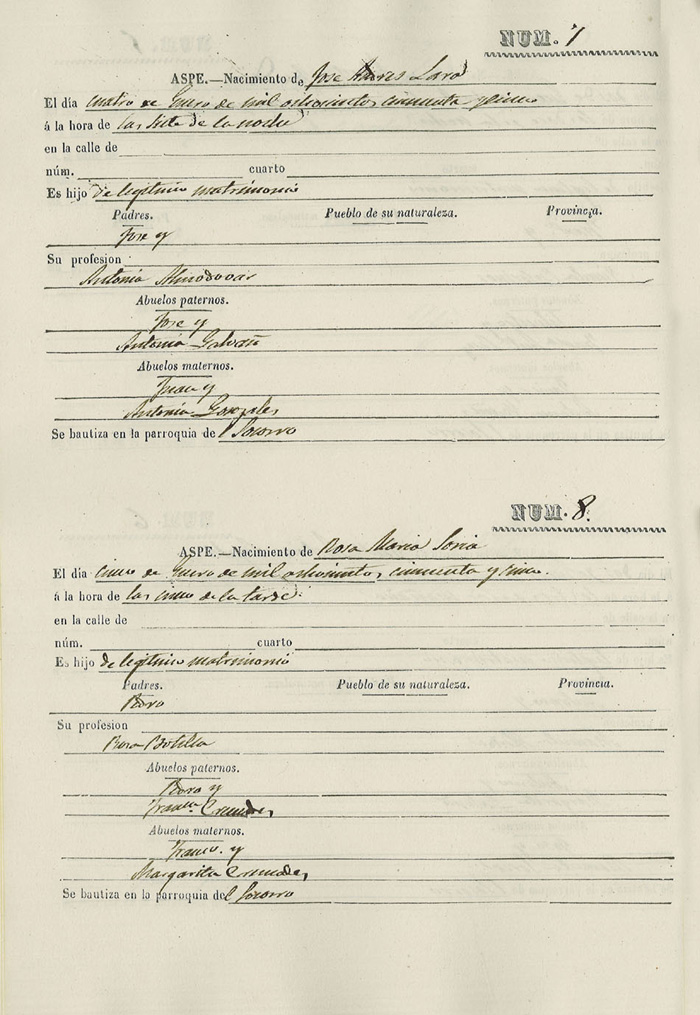 NUM. 7
ASPE.—Nacimiento de Jose Lara
El día cuatro de Enero de mil ochocientos cincuenta y cinco
á la hora de las siete de la noche
en la calle de
núm. cuarto
Es hijo de legitimo matrimonio
Padres. Pueblo de su naturaleza. Provincia.
Jose y
Su profesion
Antonia Almodovar
Abuelos paternos.
Jose y
Antonia Galvañ
Abuelos maternos.
Juan y
Antonia Gonzales
Se bautiza en la parroquia de l Socorro
NUM. 8.
ASPE.—Nacimiento de Rosa Maria Soria
El día cinco de Enero de mil ochocientos cincuenta y cinco.
á la hora de las cinco de la tarde
en la calle de
núm. cuarto
Es hijo de legitimo matrimonio
Padres. Pueblo de su naturaleza. Provincia.
Su profesion
Rosa Botella
Abuelos paternos.
y
Franca. Cremades
Abuelos maternos.
Franco. y
Margarita Cremades
Se bautiza en la parroquia del Socorro